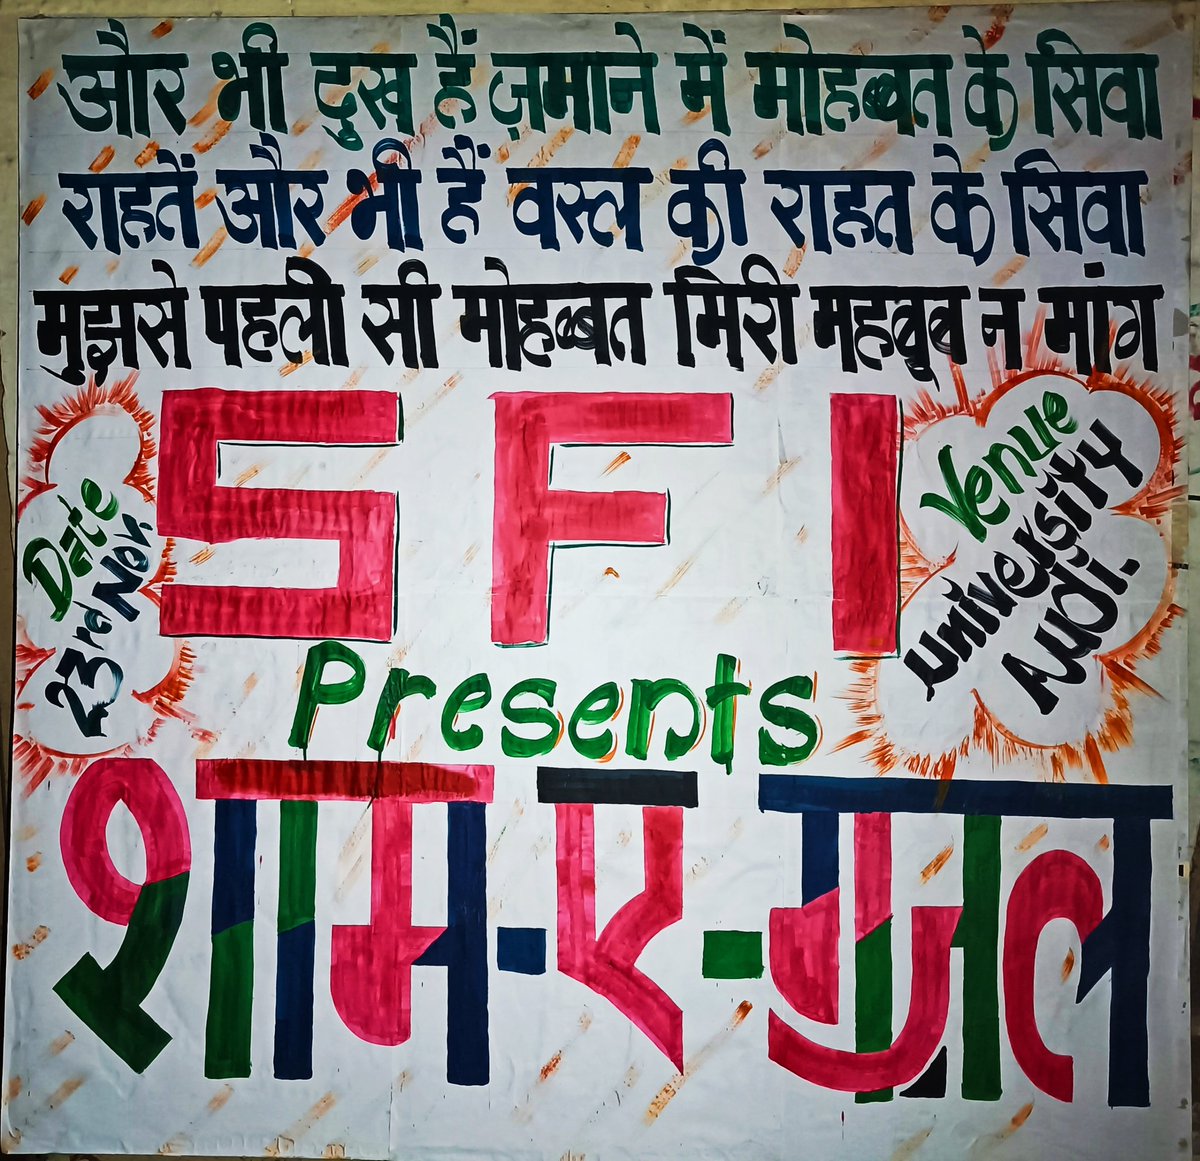 और भी दुख हैं ज़माने में मोहब्बत के सिवा
राहतें और भी हैं वस्ल की राहत के सिवा
मुझसे पहली सी मोहब्बत मिरी महबूब न मांग
SFI
Date
23rd Nov.
Venue
University
Audi.
Presents
शाम-ए-गज़ल